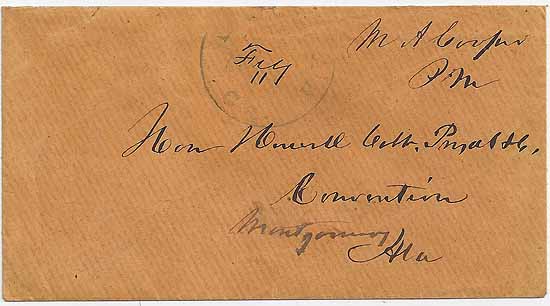 M A Cooper
P M
Feb
Hon Howell Cobb, Presdt &c,
Convention
Montgomery
Ala